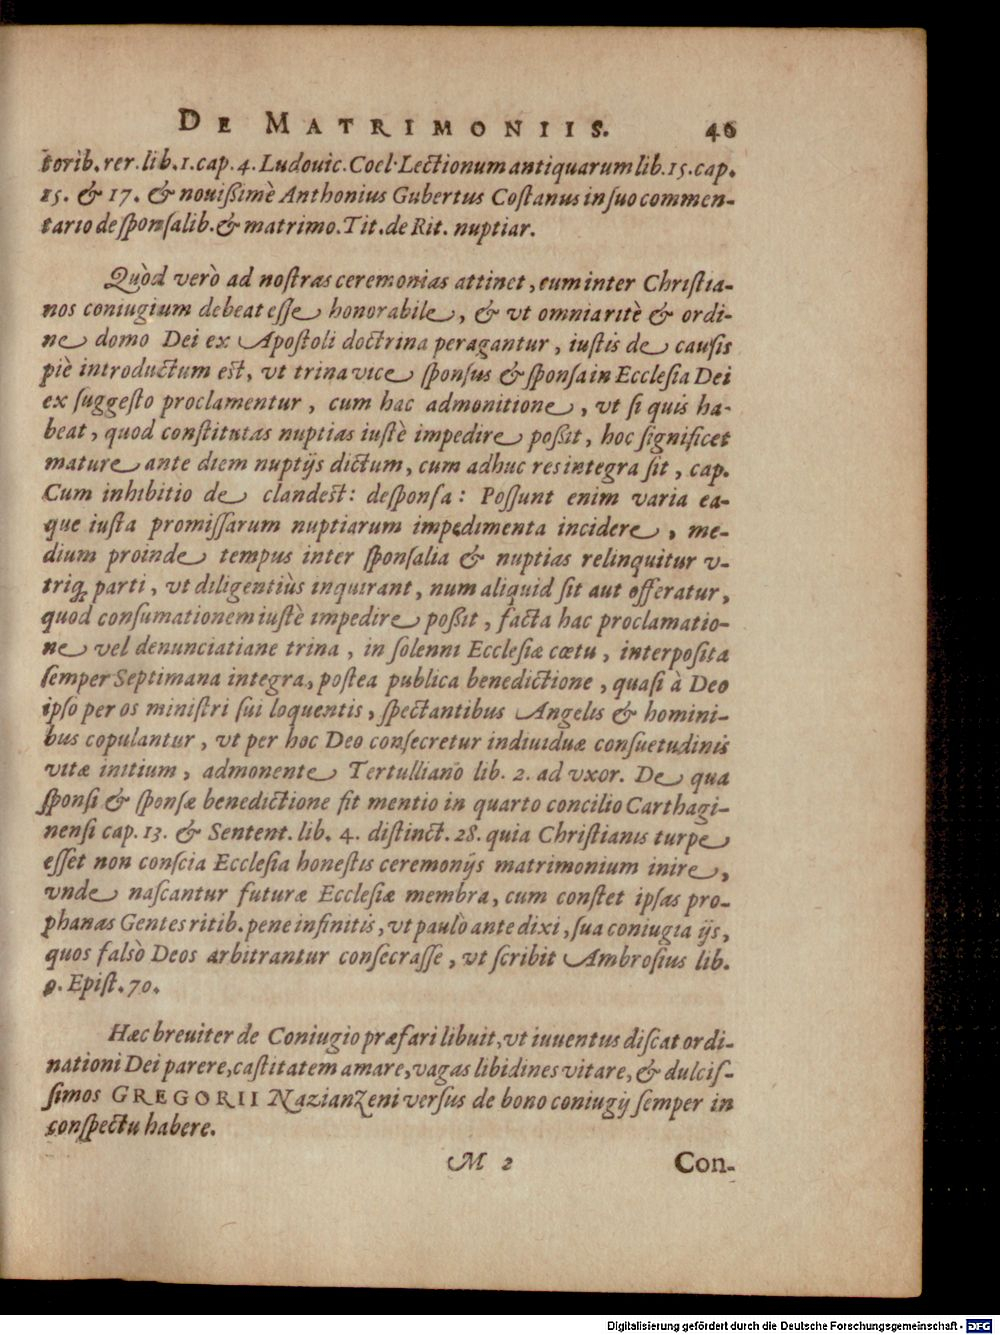 DE MATRIMONIIS. 46
torib. rer. lib. 1. cap. 4. Ludouic. Coel. Lectionum antiquarum lib. 15. cap.
15. & 17. & nouißimè Anthonius Gubertus Costanus in suo commen-
tario de sponsalib. & matrimo. Tit. de Rit. nuptiar.
Quòd verò ad nostras ceremonias attinet, cum inter Christia-
nos coniugium debeat esse honorabile, & vt omnia ritè & ordi-
ne domo Dei ex Apostoli doctrina peragantur, iustis de causis
piè introductum est, vt trina vice sponsus & sponsa in Ecclesia Dei
ex suggesto proclamentur, cum hac admonitione, vt si quis ha-
beat, quod constitutas nuptias iustè impedire poßit, hoc significet
mature ante diem nuptijs dictum, cum adhuc res integra sit, cap.
Cum inhibitio de clandest: desponsa: Possunt enim varia ea-
que iusta promissarum nuptiarum impedimenta incidere, me-
dium proinde tempus inter sponsalia & nuptias relinquitur v-
triq; parti, vt diligentiùs inquirant, num aliquid sit aut offeratur,
quod consumationem iustè impedire poßit, facta hac proclamatio-
ne vel denunciatiane trina, in solenni Ecclesiæ cœtu, interposita
semper Septimana integra, postea publica benedictione, quasi à Deo
ipso per os ministri sui loquentis, spectantibus Angelis & homini-
bus copulantur, vt per hoc Deo consecretur indiuiduæ consuetudinis
vitæ initium, admonente Tertulliano lib. 2. ad vxor. De qua
sponsi & sponsæ benedictione fit mentio in quarto concilio Carthagi-
nensi cap. 13. & Sentent. lib. 4. distinct. 28. quia Christianis turpe
esset non conscia Ecclesia honestis ceremonijs matrimonium inire,
vnde nascantur futuræ Ecclesiæ membra, cum constet ipsas pro-
phanas Gentes ritib. pene infinitis, vt paulò ante dixi, sua coniugia ijs,
quos falsò Deos arbitrantur consecrasse, vt scribit Ambrosius lib.
9. Epist. 70.
Hæc breuiter de Coniugio præfari libuit, vt iuuentus discat ordi-
nationi Dei parere, castitatem amare, vagas libidines vitare, & dulcis-
simos GREGORII Nazianzeni versus de bono coniugij semper in
conspectu habere.
M 2 Con-
Digitalisierung gefördert durch die Deutsche Forschungsgemeinschaft - DFG